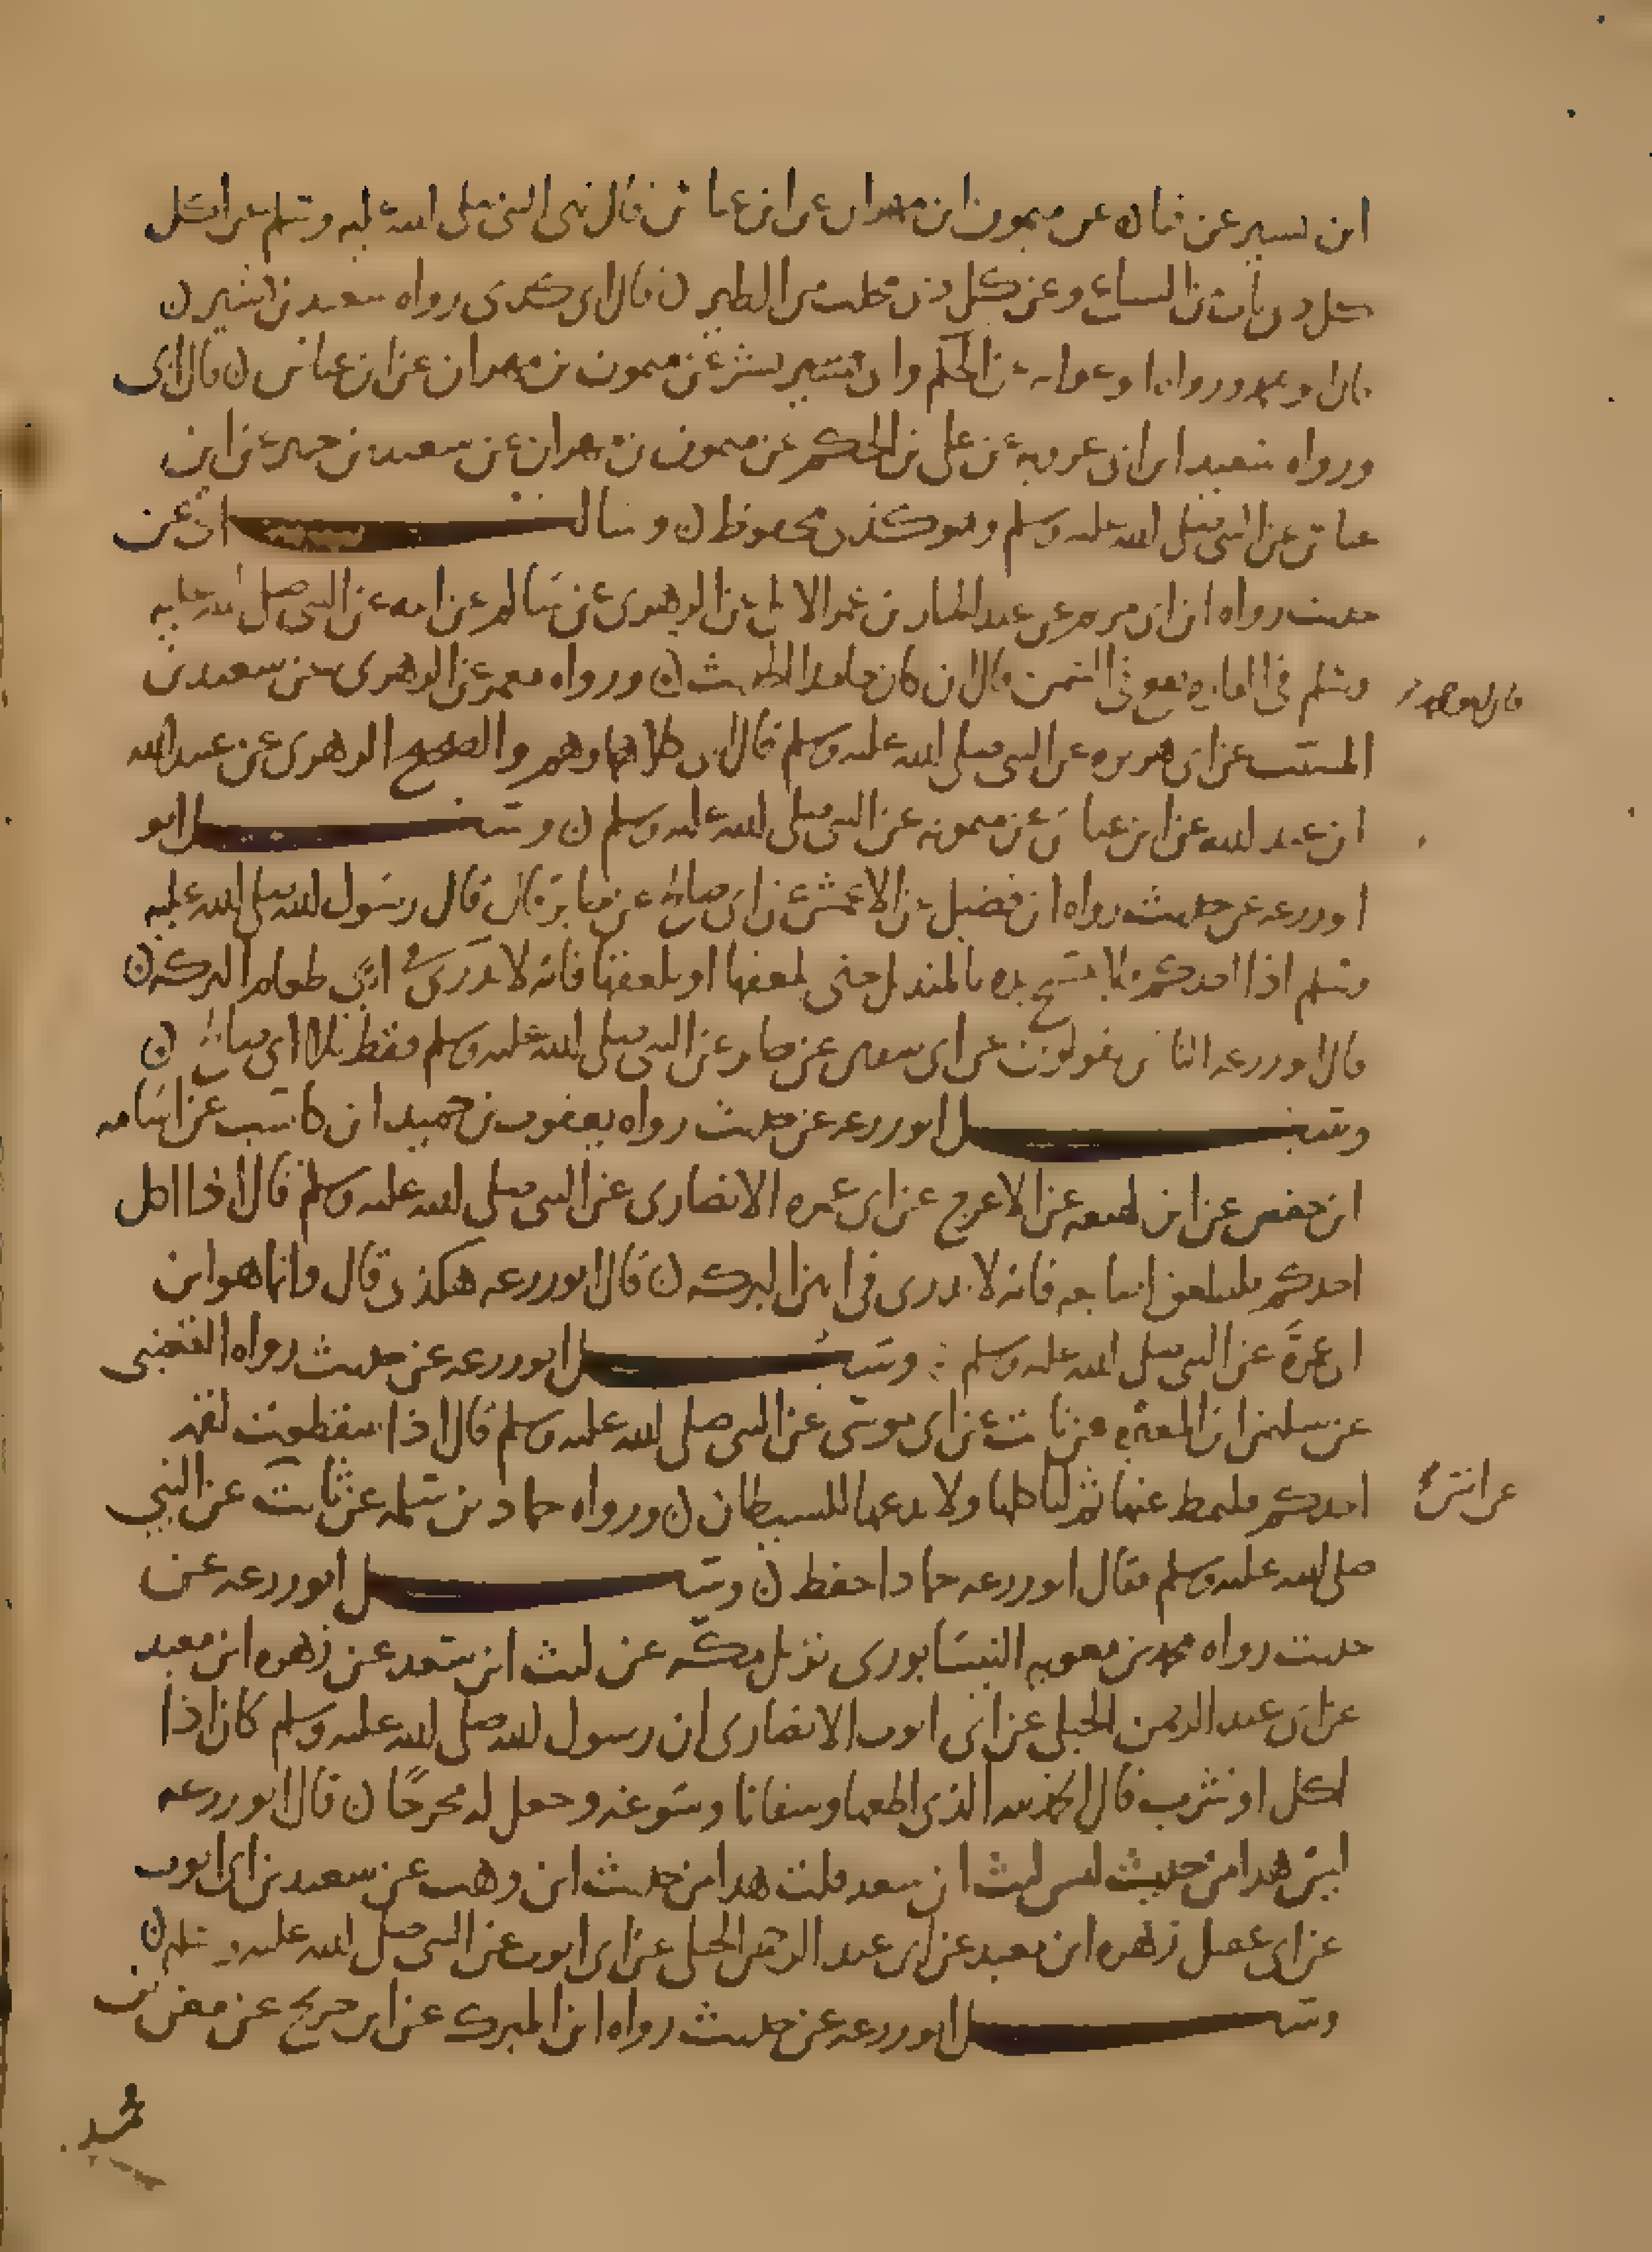 ابن بشير عن قتاده عن ميمون ابن مهران عن ابن عباس قال نهى النبي صلى الله عليه وسلم عن اكل
كل ذي ناب من السباع وعن كل ذي مخلب من الطير ن قال ابي كذي رواه سعيد بن بشير ن
قال ابو محمد ورواه ابو عوانه عن الحكم وابي بشر عن ميمون بن مهران عن ابن عباس ن قال ابي
ورواه سعيد ابن ابي عروبه عن علي بن الحكم عن ميمون بن مهران عن سعيد بن جبير عن ابن
عباس عن النبي صلى الله عليه وسلم وهو كذي محفوظ ن وسالت ابي عن
حديث رواه ابن ابي مريم عن عبد الجبار بن عمر الايلي عن الزهري عن سالم عن ابيه عن النبي صلى الله عليه
وسلم في الفاره تقع في السمن قال ان كان جامدا الحديث ن ورواه معمر عن الزهري عن سعيد بن
المسيب عن ابي هريره عن النبي صلى الله عليه وسلم قال ابي كلاهما وهم والصحيح الزهري عن عبيد الله
ابن عبد الله عن ابن عباس عن ميمونه عن النبي صلى الله عليه وسلم ن وسئل ابو
ا وزرعه عن حديث رواه ابن فضيل عن الاعمش عن ابي صالح عن جابر قال قال رسول الله صلى الله عليه
وسلم اذا احدكم فلا يمسح يده بالمنديل حتى يلعقها او يلعقها فانه لا يدري في اي طعامه البركه ن
قال ابو زرعه الناس يقولون عن ابي سفين عن جابر عن النبي صلى الله عليه وسلم فقط بلا ابي صالح ن
وسئل ابو زرعه عن حديث رواه يعقوب بن حميد ابن كاسب عن اسامه
ابن حفص عن ابن لهيعه عن الاعرج عن ابي عمره الانصاري عن النبي صلى الله عليه وسلم قال اذا اكل
احدكم فليلعق اصابعه فانه لا يدري في ايتها البركه ن قال ابو زرعه هكذي قال وانما هو ابن
ابي عمرة عن النبي صلى الله عليه وسلم : وسئل ابو زرعه عن حديث رواه القعنبي
عن سليمن ابن المغيرة عن ثابت عن ابي موسى عن النبي صلى الله عليه وسلم قال اذا سقطت لقمه
احدكم فليمط عنها ثم لياكلها ولا يدعها للشيطان ن ورواه حماد بن سلمه عن ثابت عن النبي
عن انس
صلى الله عليه وسلم فقال ابو زرعه حماد احفظ ن وسئل ابو زرعه عن
حديث رواه محمد بن معويه النيسابوري نزيل مكه عن ليث ابن سعد عن زهره ابن معبد
عن ابي عبد الرحمن الحبلي عن ابي ايوب الانصاري ان رسول الله صلى الله عليه وسلم كان اذا
اكل او شرب قال الحمد لله الذي اطعمنا وسقانا وسوغه وجعل له مخرجًا ن قال ابو زرعه
ليس هذا من حديث ليث ابن سعد قلت هذا من حديث ابن وهب عن سعيد بن ابي ايوب
عن ابي عقيل زهره ابن معبد عن ابي عبد الرحمن الحبلي عن ابي ايوب عن النبي صلى الله عليه وسلم ن
وسئل ابو زرعه عن حديث رواه ابن المبرك عن ابن جريج عن معن بن
محمد